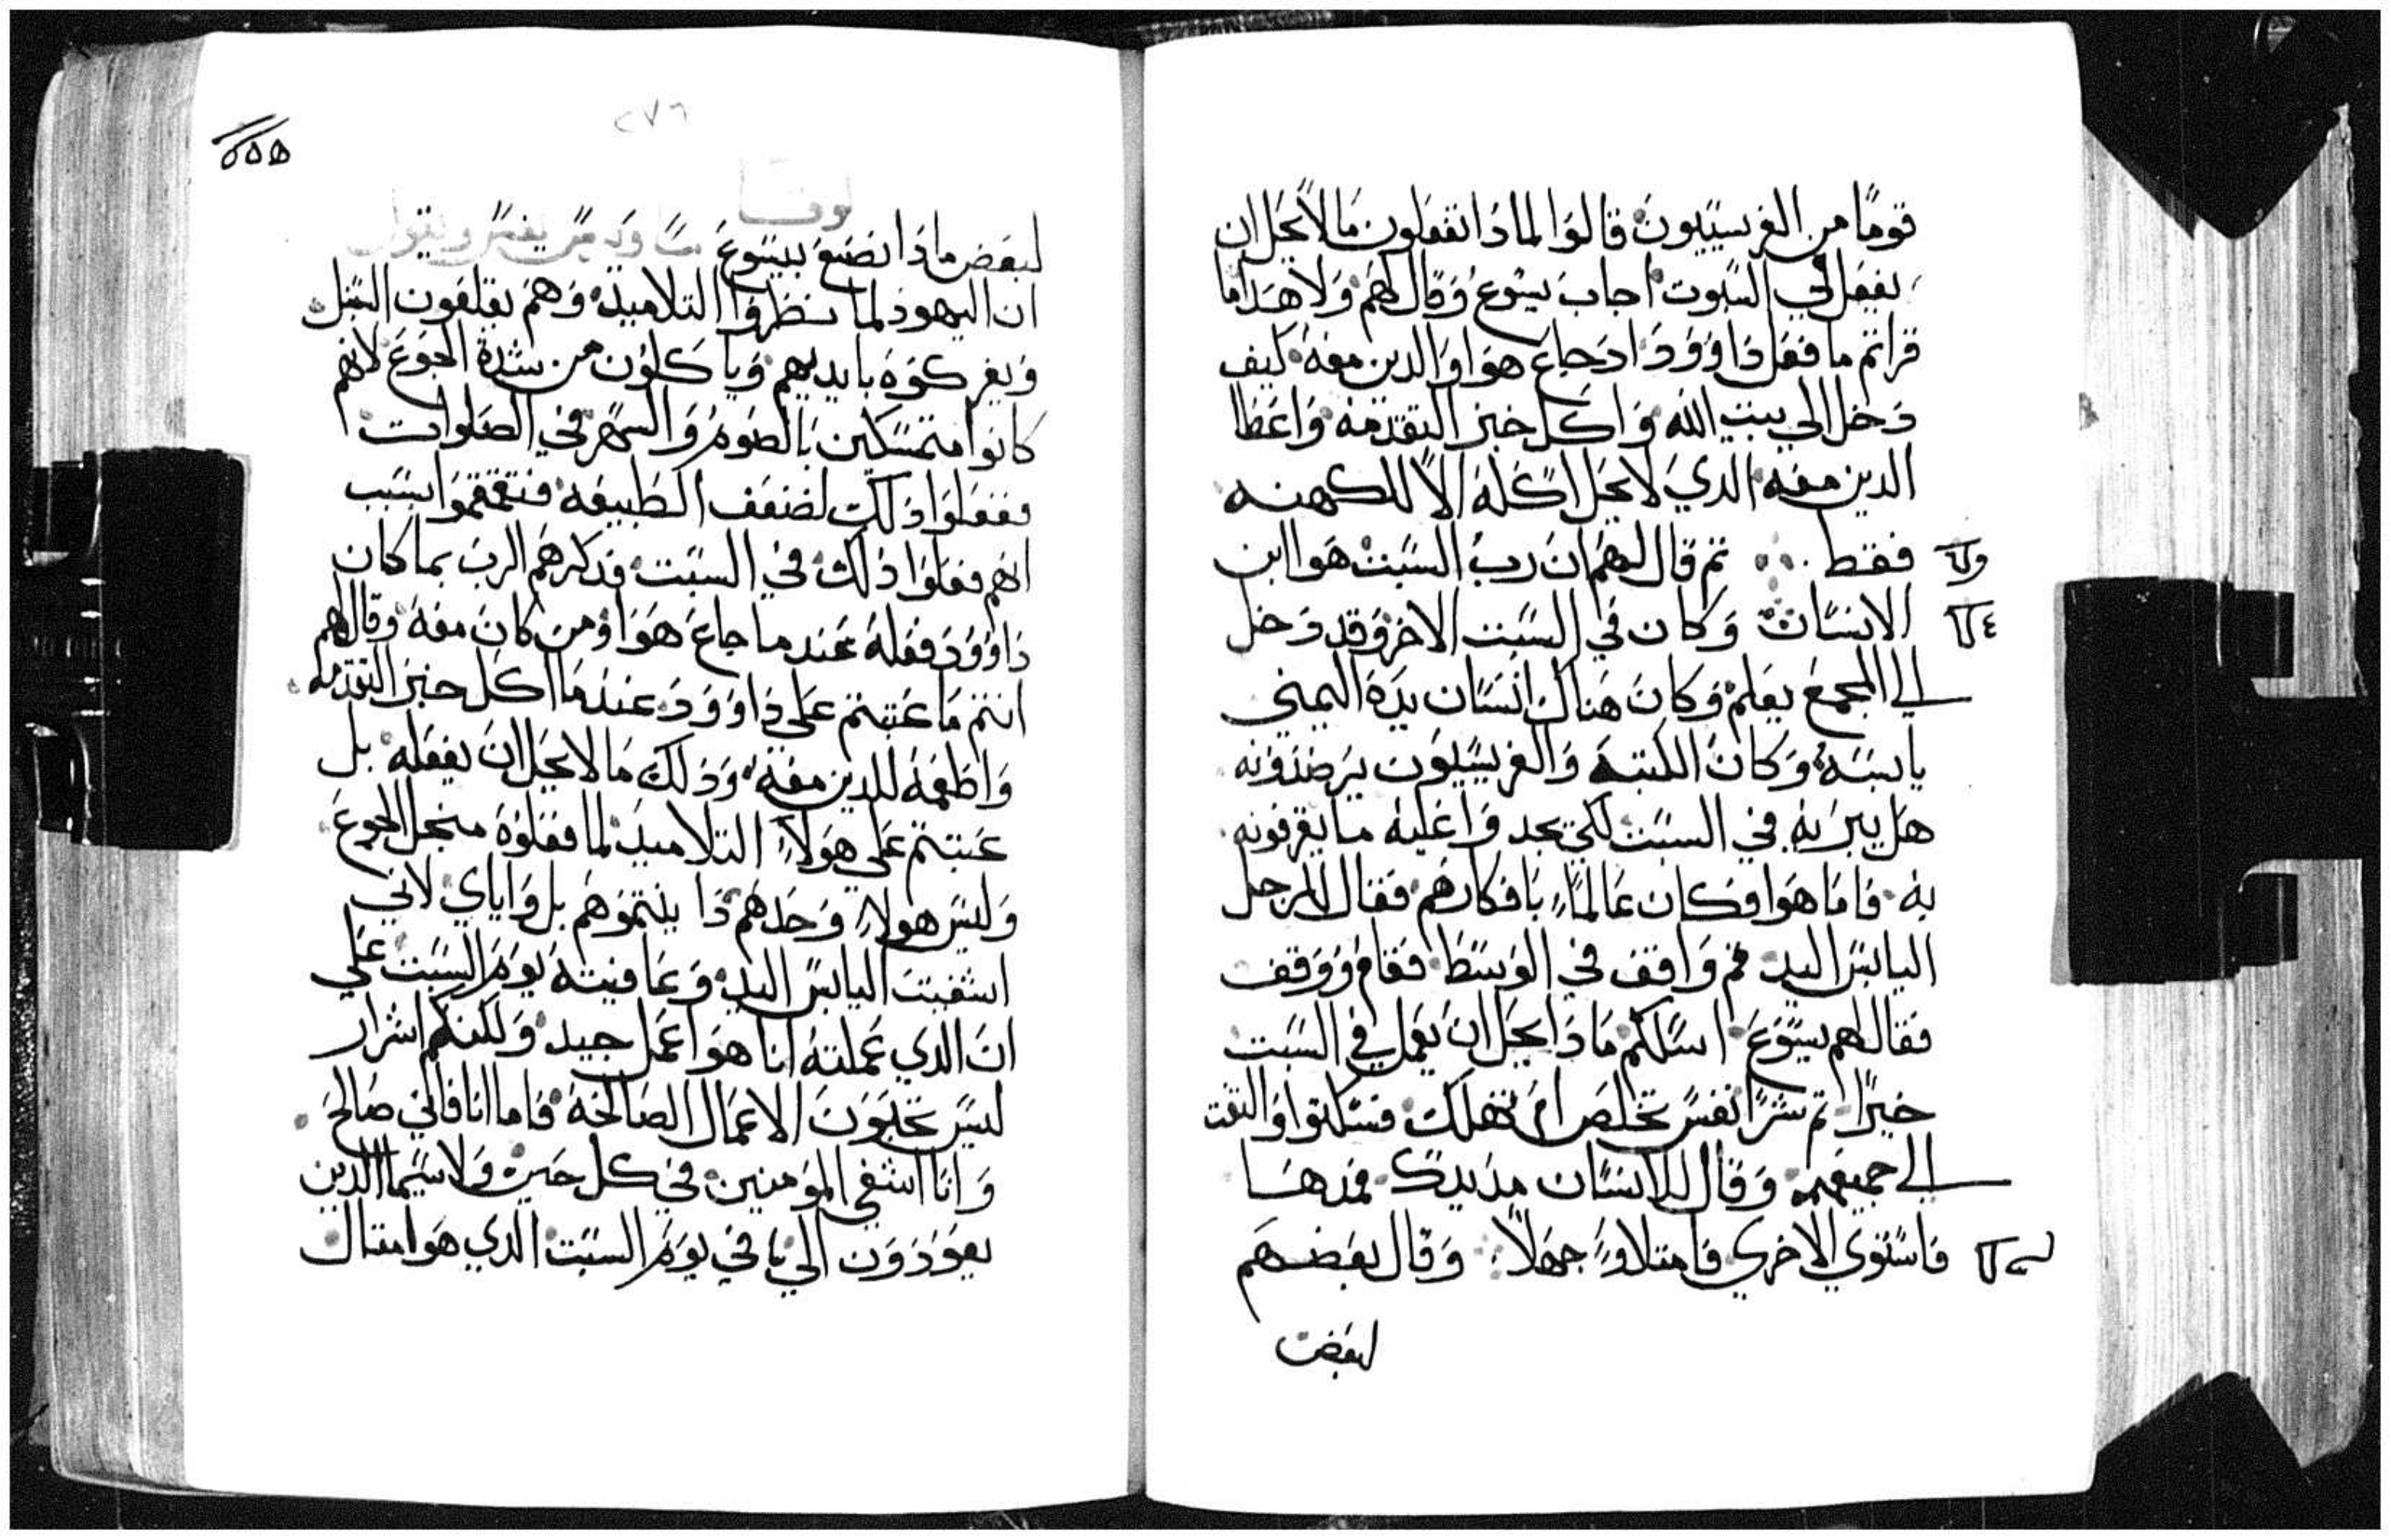 قومًا من الفريسيين قالوا لماذا تفعلون ما لا يحل ان
يفعل في السبوت اجاب يسوع وقال لهم ولا هدا ما
قراتم ما فعل داوود اد جاع هوا والدين معه كيف
دخل الي بيت الله واكل خبز التقدمه واعطا
الدين معه الدي لا يحل اكله الا للكهنه
فقط تم قال لهم ان رب السبت هوا ابن
الانسان وكان في السبت الاخر وقد دخل
الي المجمع يعلم وكان هناك انسان يده اليمني
يابسه وكان الكتبة والفريسيون يرصدونه
هل يبريه في السبت لكي يجدوا عليه ما يقرفونه
به فاما هوا فكان عالمًا بافكارهم فقال للرجل
اليابس اليد قم واقف في الوسط فقام ووقف
فقال لهم يسوع اسلكم مادا يحل ان يعمل في السبت
خيرًا تم شرًا نفس تخلص ام تهلك فسكتوا والتفت
الي جميعهم وقال للانسان مد يدك فمدها
فاستوي الاخري فامتلاو جهلاً وقال بعضهم
لبعض
٢٧٦
٥٥٥
لوقا
لبعض مادا نصنع بيسوع
ان اليهود لما نظروا التلاميد وهم يقلعون السبل
ويفركوه بايديهم وياكلون من شدة الجوع لانهم
كانوا متمسكين بالصوم والسهر في الصلوات
ففعلوا دلك لضعف الطبيعه فتقمقموا بسبب
انهم فعلوا دلك في السبت فدكرهم الرب بما كان
داوود فعله عندما جاع هوا ومن كان معه وقال لهم
انتم ما عتبتم علي داوود عندما اكل خبز التقدمه
واطعمه للدين معه ودلك ما لا يحل ان يفعله بل
عتبتم علي هولاء التلاميد لما فعلوه منجل الجوع
وليس هولاء وحدهم دا يلتموهم بل واياي لاني
اشفيت اليابس اليد وعافيته يوم السبت علي
ان الدي عملته انا هوا عمل جيد ولكنكم اشرار
ليس تحبون الاعمال الصالحة فاما انا فاني صالح
وانا اشفي المؤمنين في كل حين ولا سيما الدين
يعودون الي يا في يوم السبت الدي هوا متال